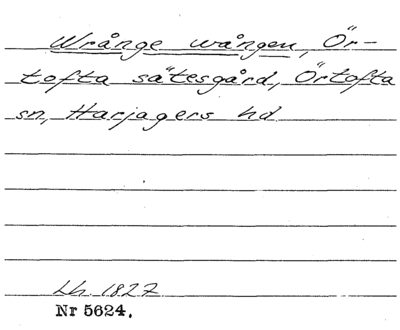 Wrånge wången, Ör-
tofta sätesgård, Örtofta
sn, Harjagers hd
Lh. 1827
Nr 5624.